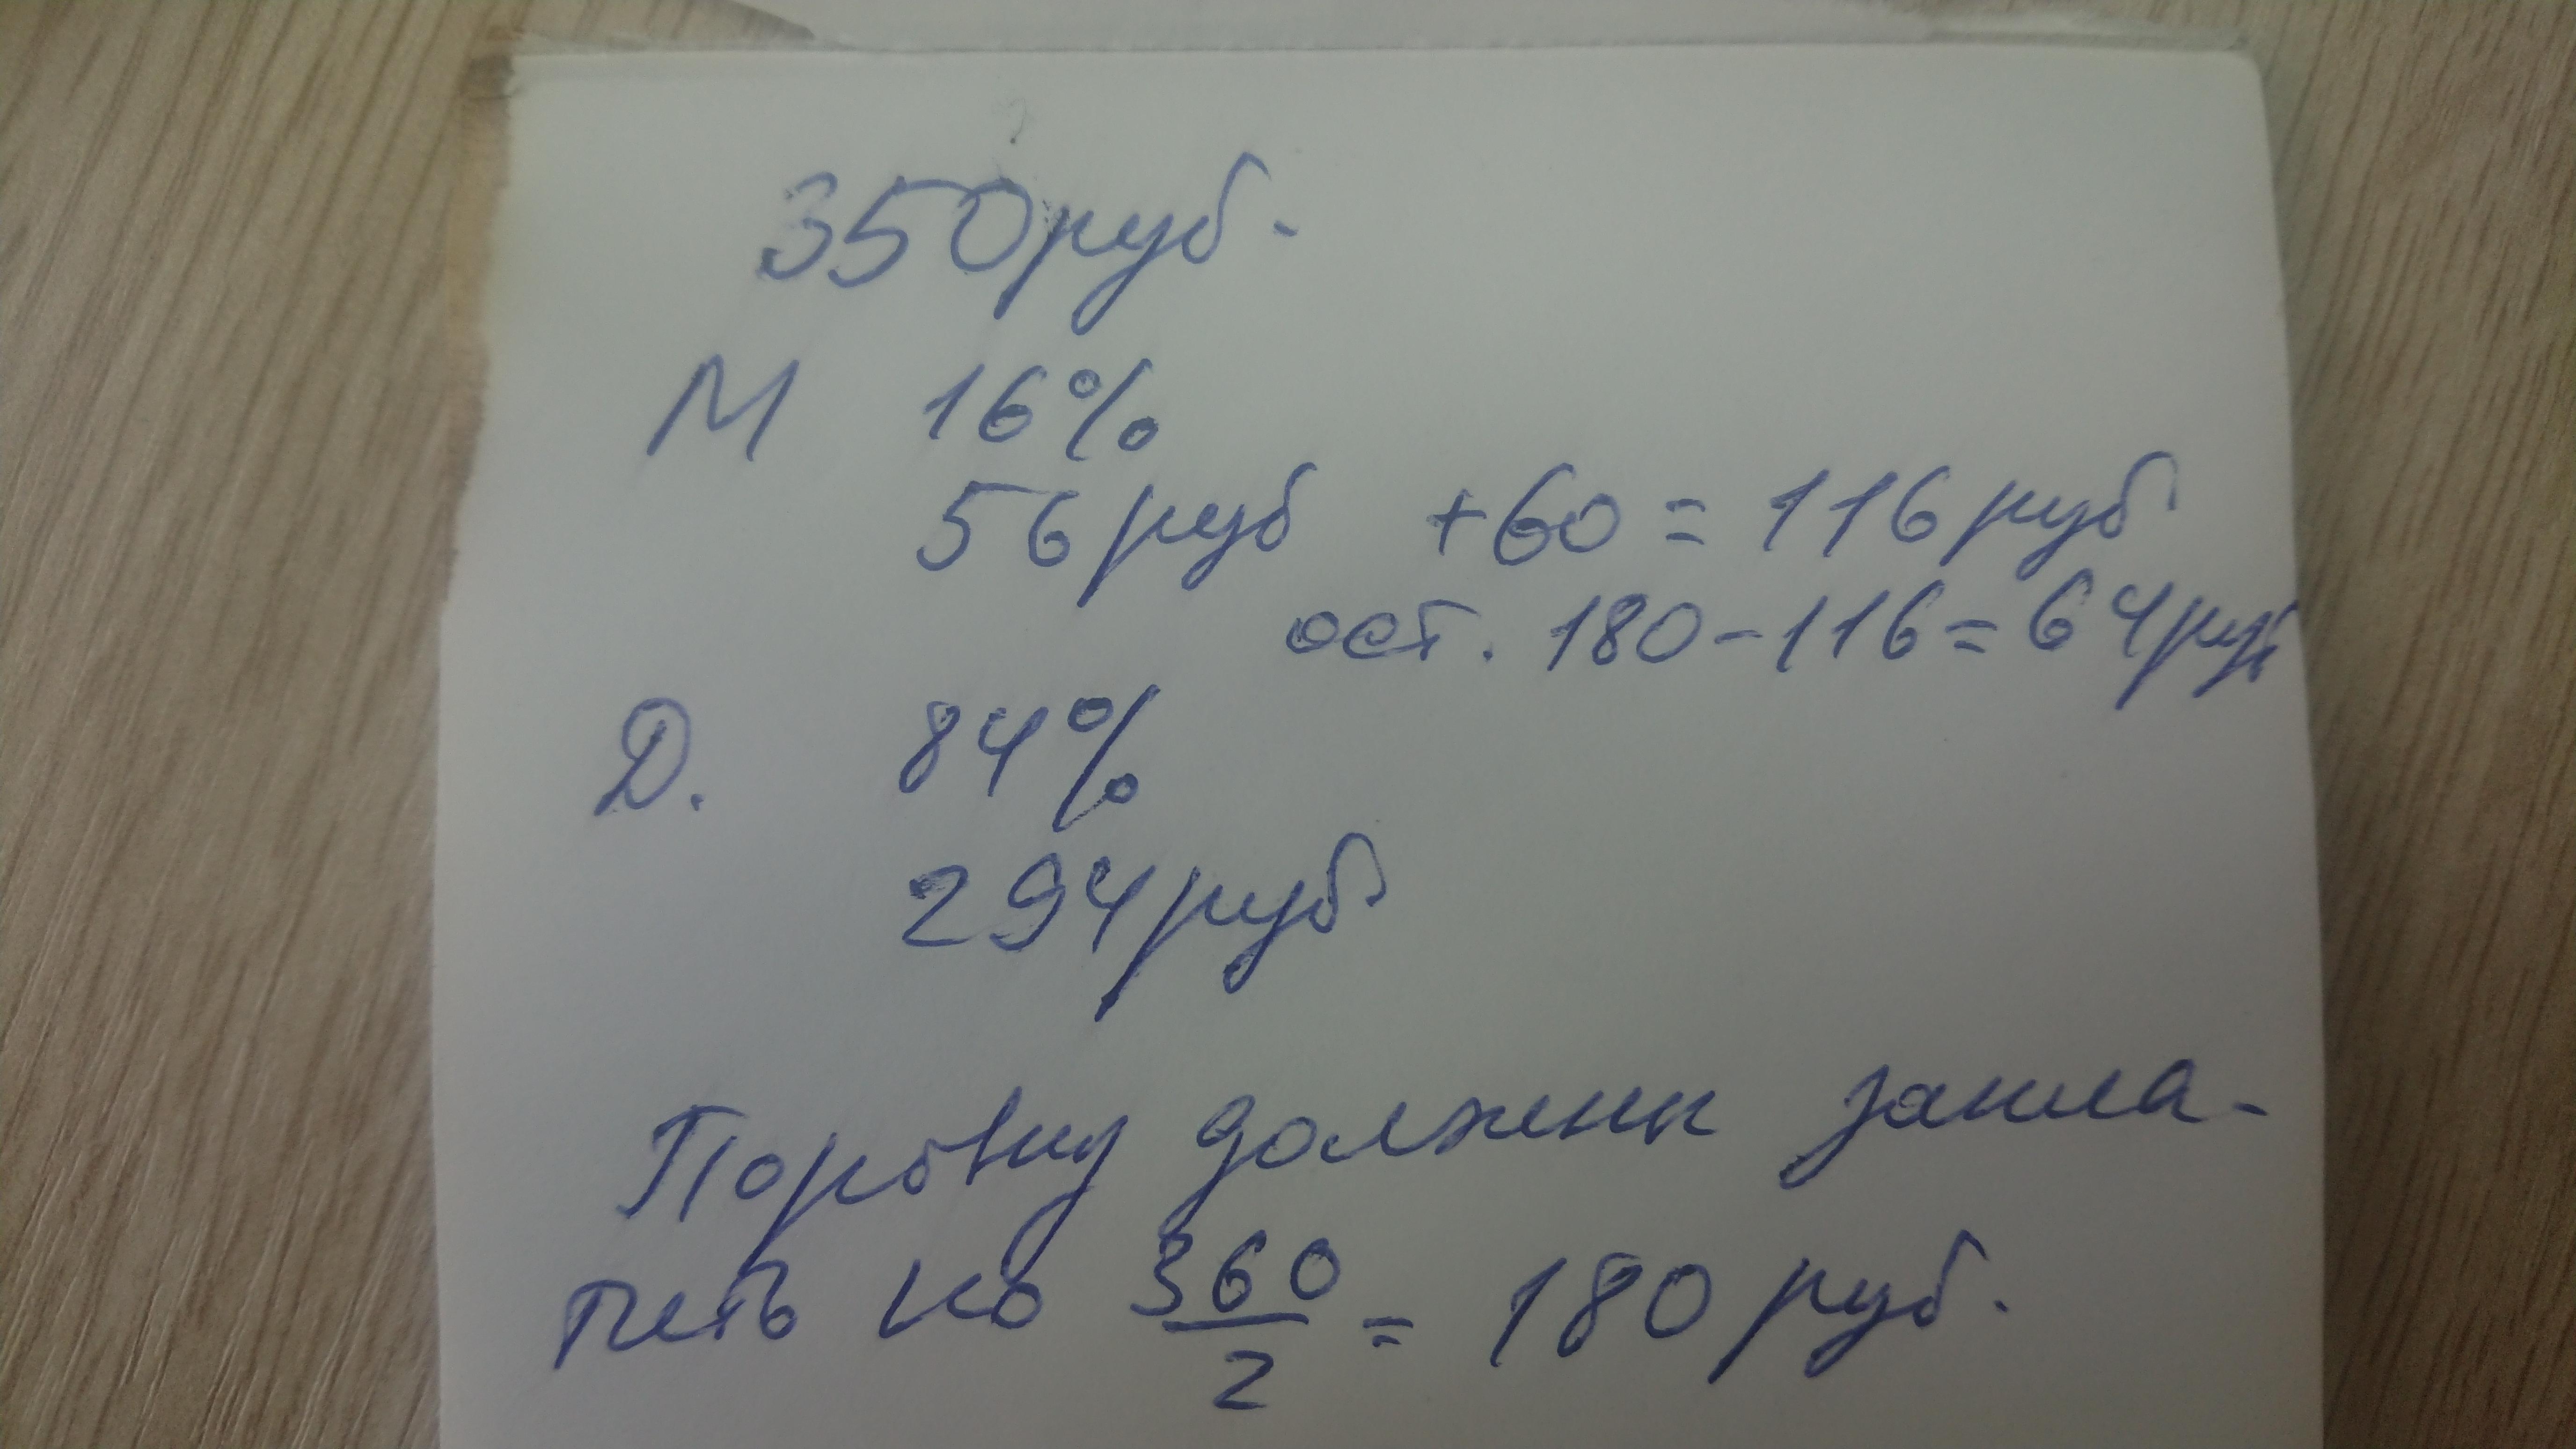 350руб.
М 16%
56руб +60=116руб
ост. 180-116=64руб
D. 84%
294руб
Поровну должны запла-
тить по 360/2 = 180руб.